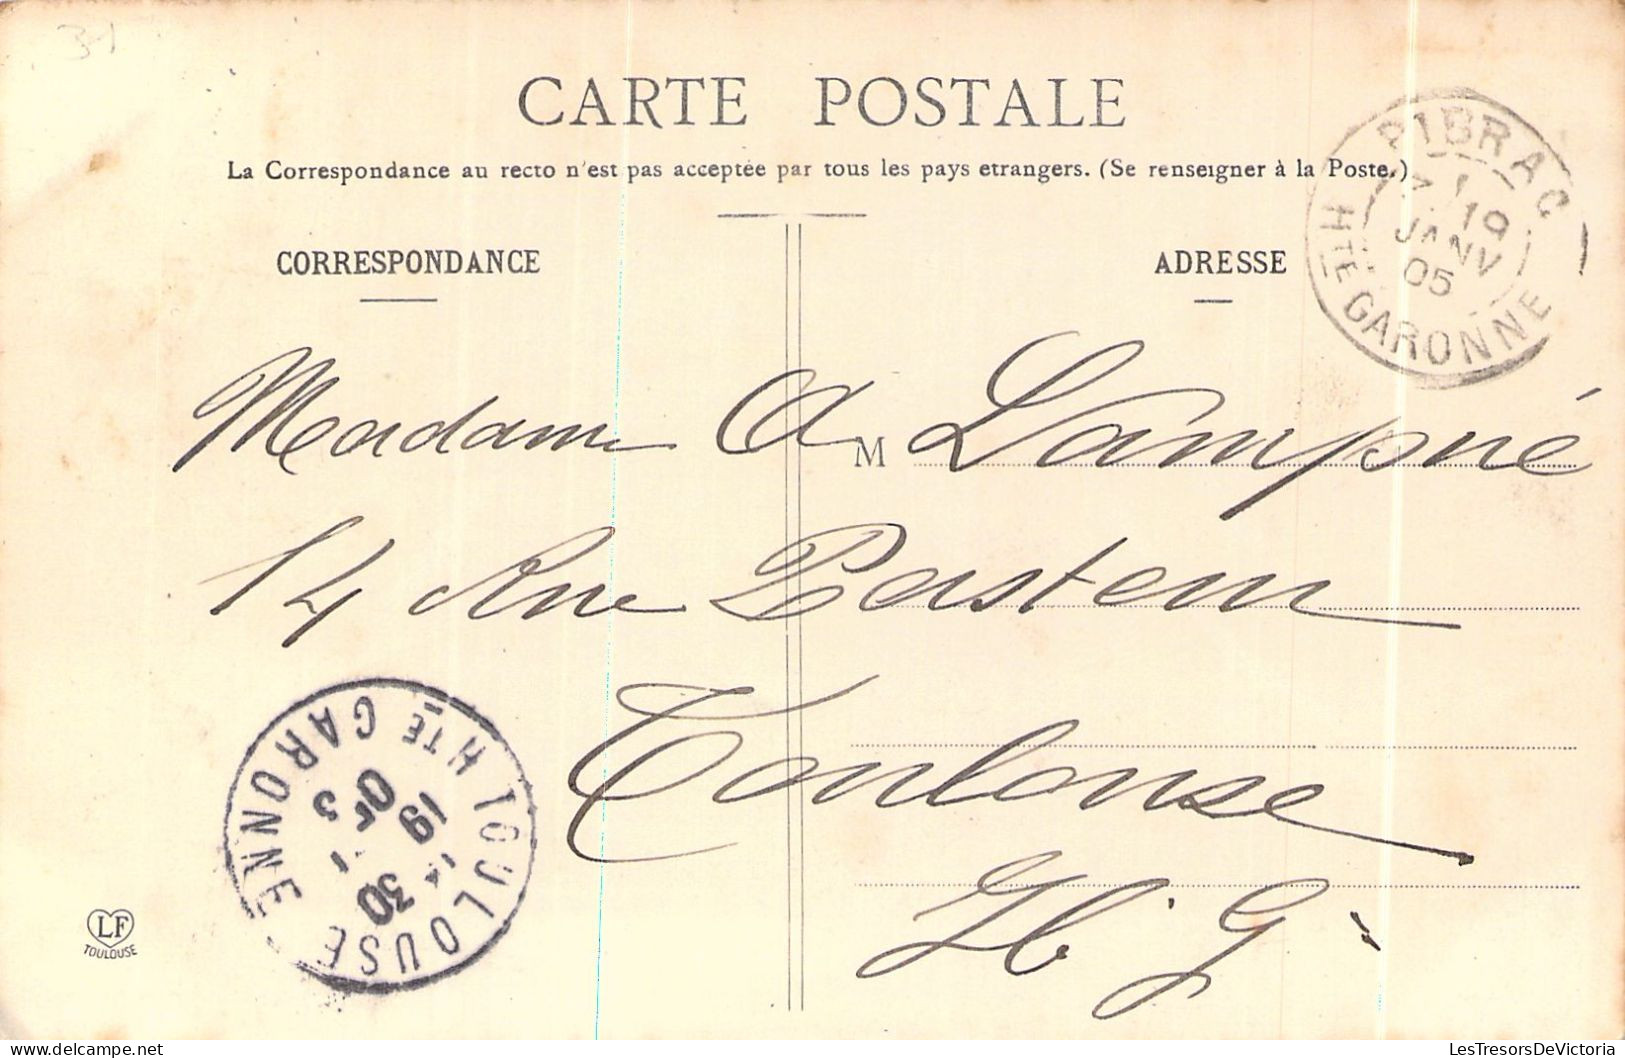 31
CARTE POSTALE
La Correspondance au recto n'est pas acceptée par tous les pays etrangers. (Se renseigner à la Poste.)
PIBRAC
19
JANV
05
HTE GARONNE
CORRESPONDANCE
ADRESSE
Madame A M Lampué
14 Rue Pasteur
Toulouse
H. G.
TOULOUSE
14 30
19 1
05
HTE GARONNE
LF
TOULOUSE
LesTresorsDeVictoria